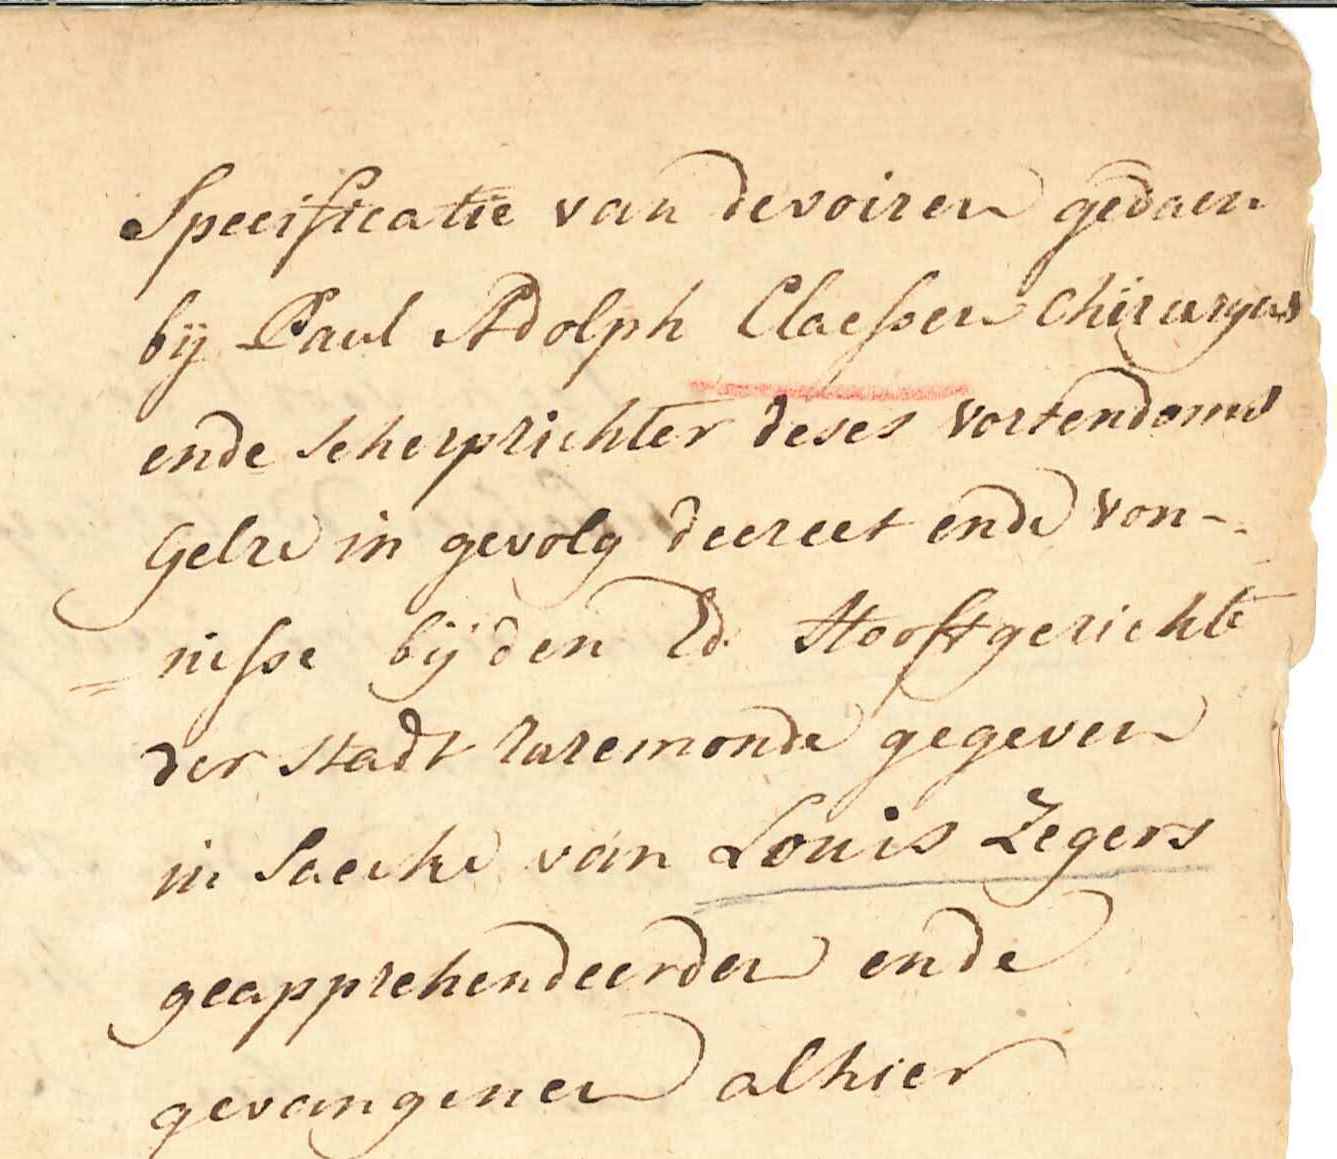 Specificatie van devoiren gedaen
bij Paul Adolph Claessen Chirurgus
ende scherprichter deses vorstendoms
Gelre in gevolg decreet ende von-
nisse bij den Ed. Hooftgerichte
der stadt Ruremonde gegeven
in saecke van Louis Zegers
geapprehendeerden ende
gevangenen alhier